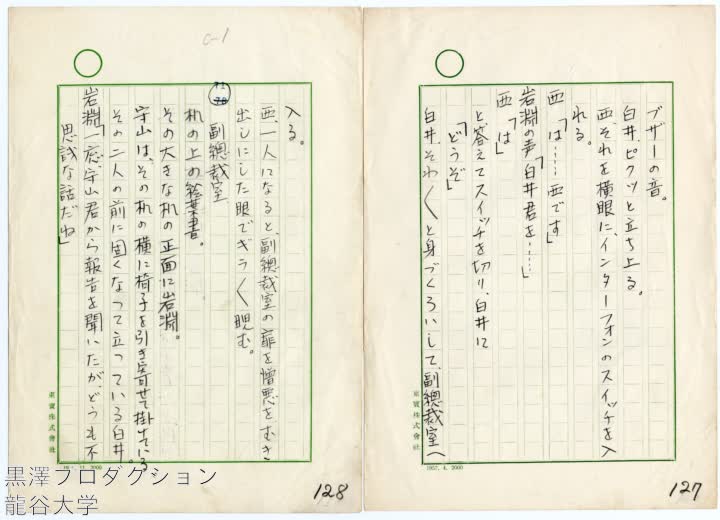 ブザーの音。
白井、ピクッと立ち上る。
西、それを横眼に、インターフォンのスイッチを入
れる。
西「は……西です」
岩淵の声「白井君を……」
西「は」
と答えてスイッチを切り、白井に
「どうぞ」
白井、そわ〱と身づくろいして、副總裁室へ
東寳株式會社
1957. 4. 2000
127
c-1
入る。
西、一人になると、副總裁室の扉を憎悪をむき
出しにした眼でギラ〱睨む。
71
70
副總裁室
机の上の絵葉書。
その大きな机の正面に岩淵。
守山は、その机の横に椅子を引き寄せて掛けている
その二人の前に固くなって立っている白井。
岩淵「一應守山君から報告を聞いたが、どうも不
思議な話だね」
東寳株式會社
128
黒澤プロダクション
龍谷大学